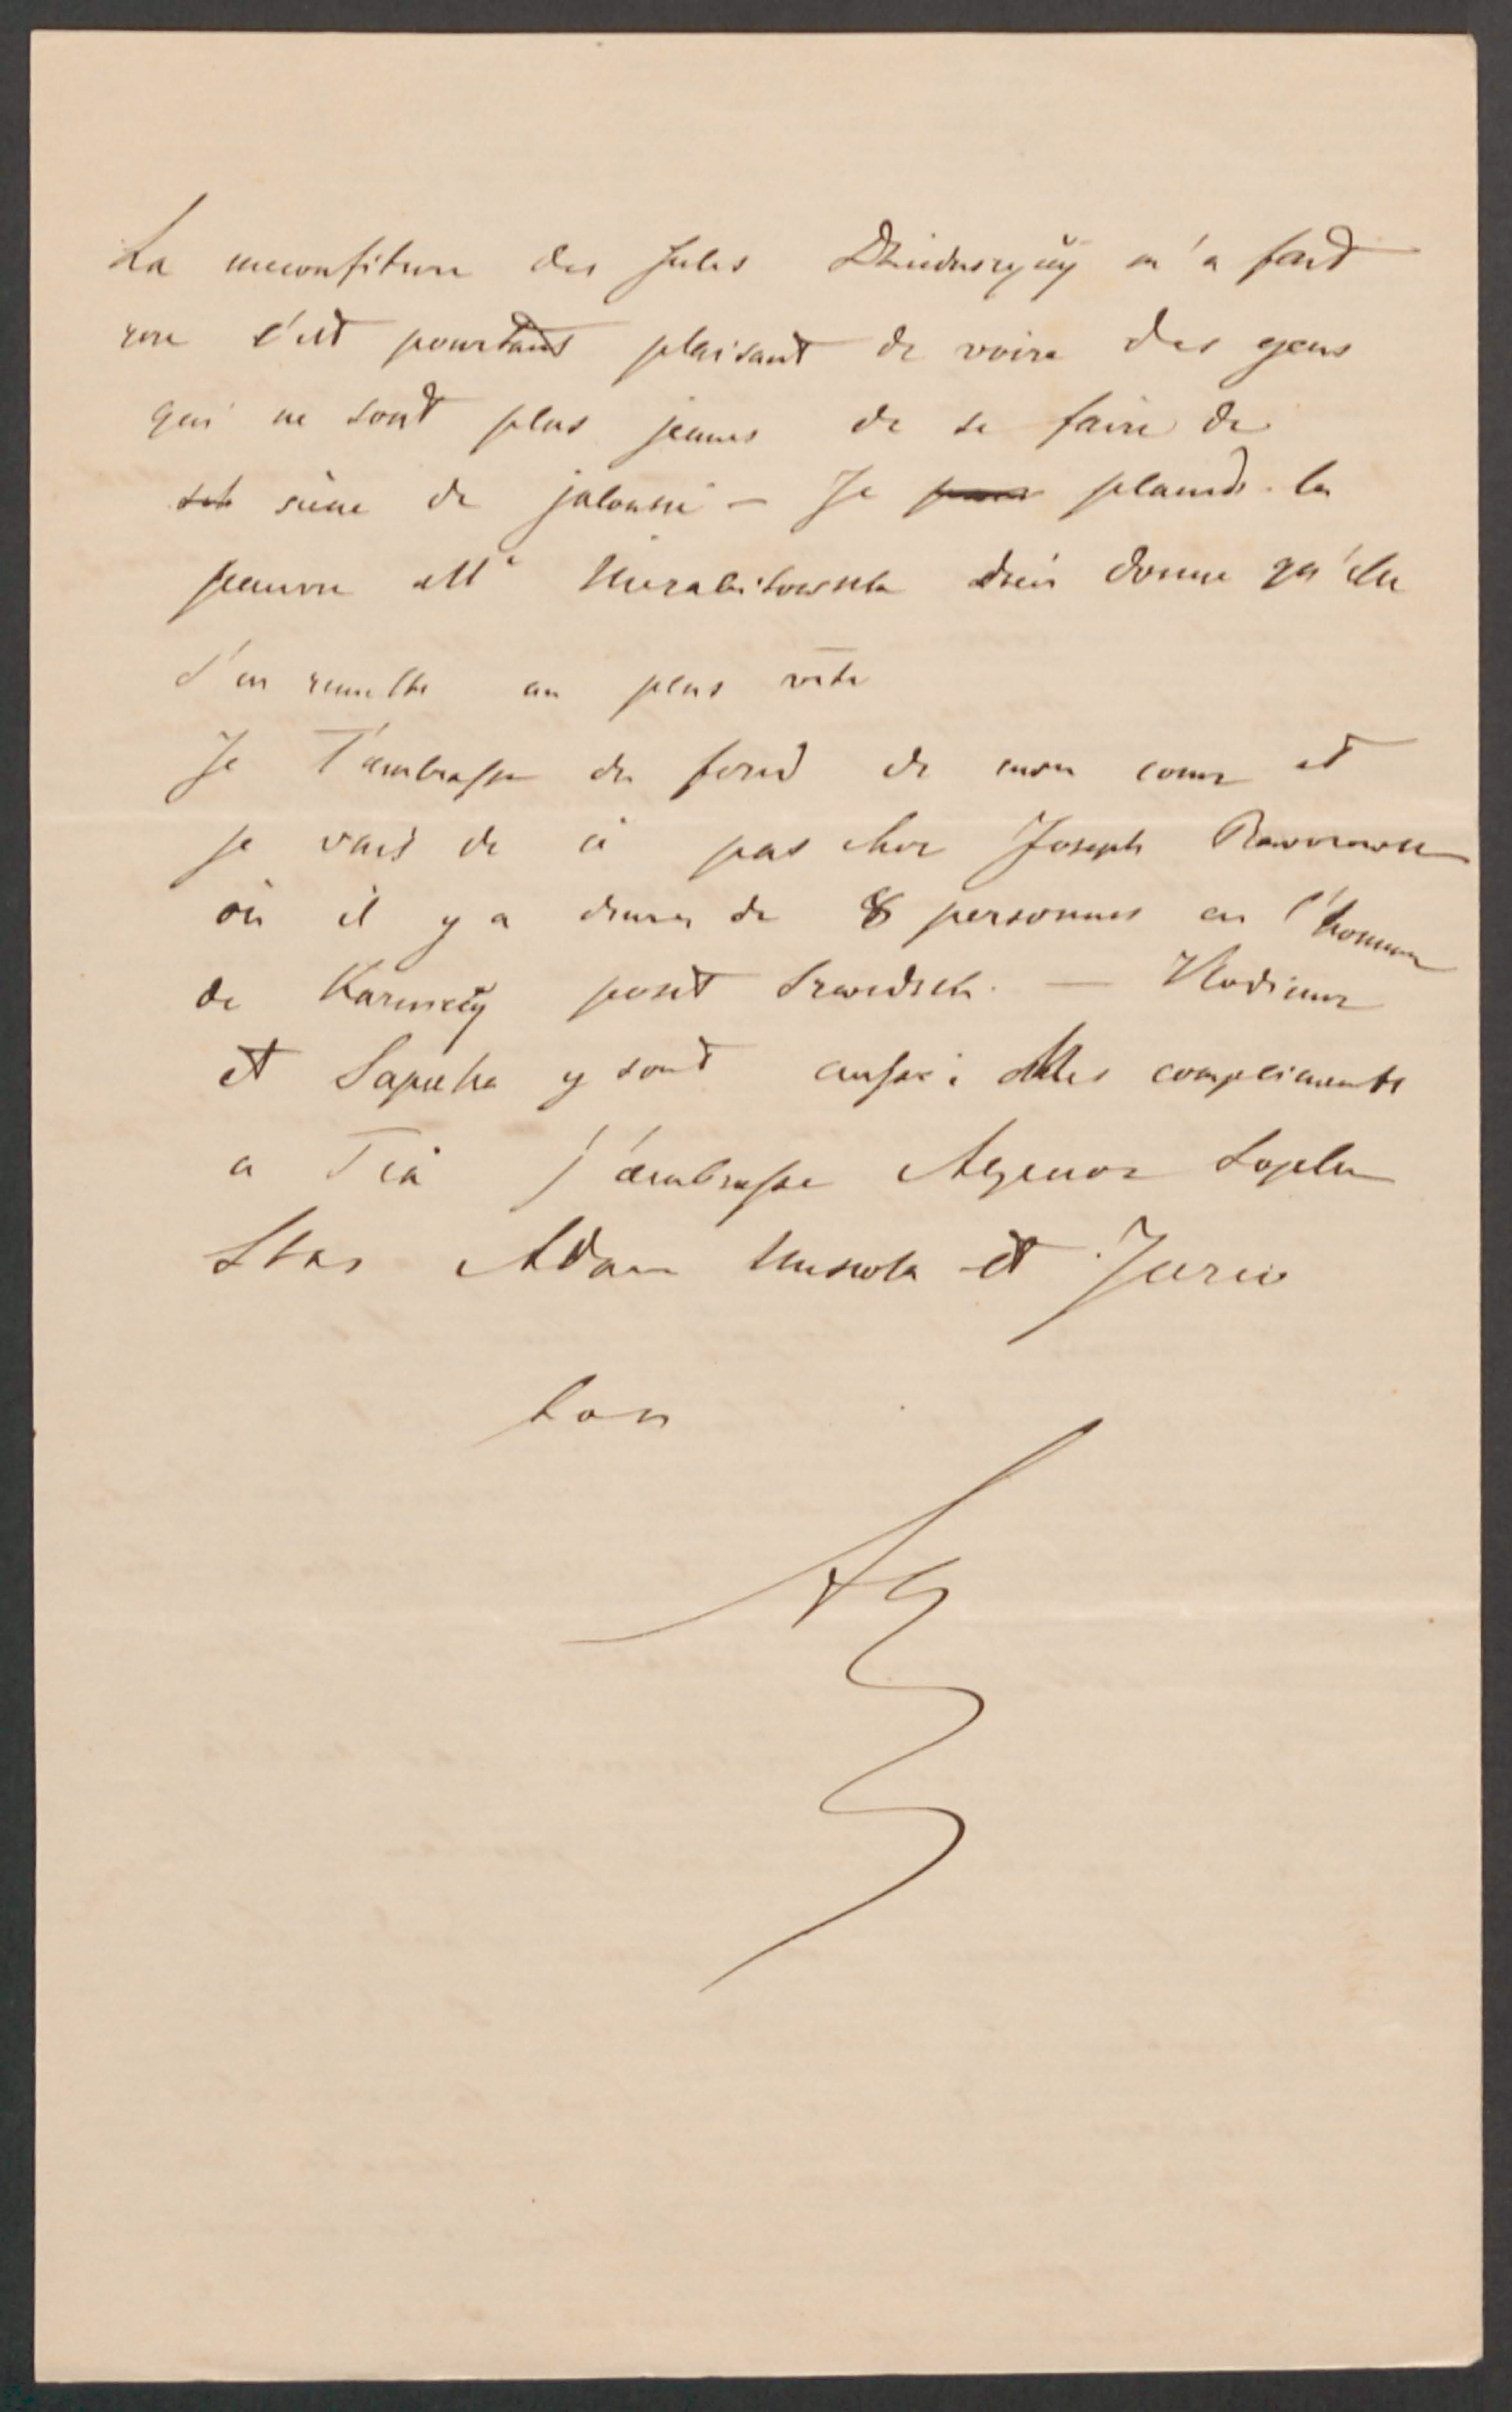 La meconfiture des Jules Dzieduszycy m'a fait
rire c'est pourtant plaisant de voire des gens
qui ne sont plus jeunes de se faire de
scène de jalousie — Je plains la
pauvre Mme donne qu'elle
s'en remette au plus vite
Je T'embrasse du fond de mon coeur et
je vais de ce pas chez Joseph
où il y a diner de 8 personnes en l'honneur
de Karnicky — Vlodimir
et Sapieha y sont aussi Mes compliments
a Tia J'embrasse Agenor Lopla
Stas Adam et Jurio
ton